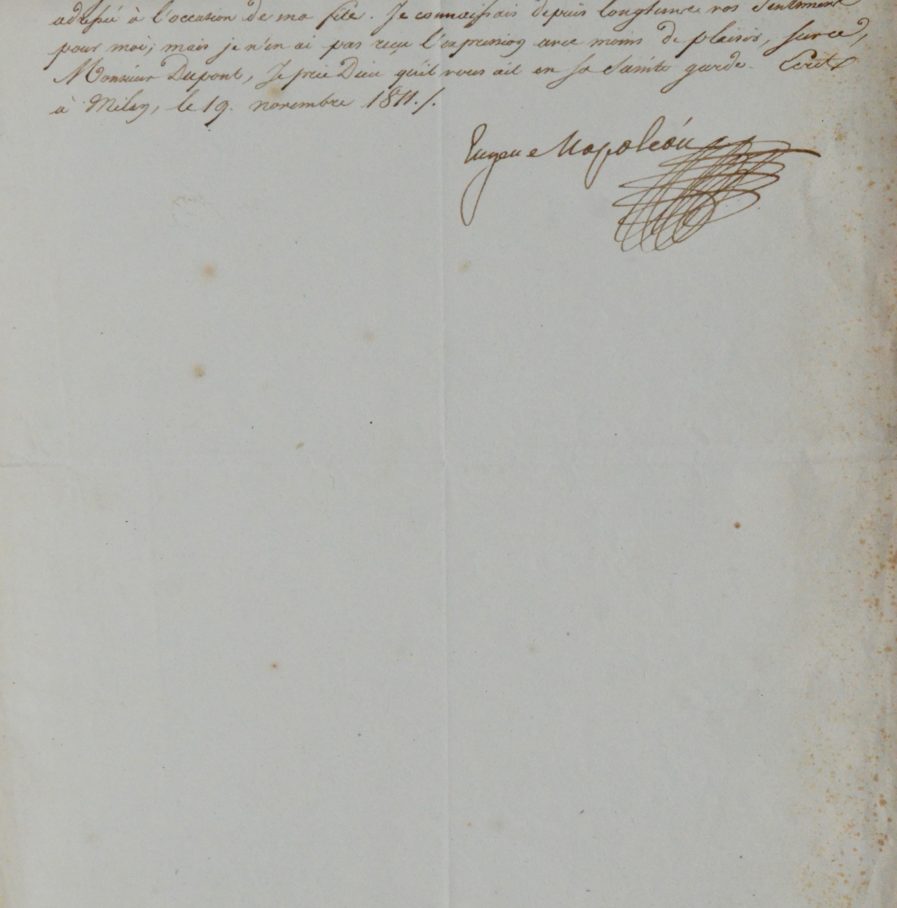 adressé à l'occasion de ma fête. Je connaissais depuis longtems vos sentimens
pour moi; mais je n'en ai pas reçu l'expression avec moins de plaisir, surce,
Monsieur Dupont, Je prie Dieu qu'il vous ait en sa Sainte garde. Ecrit
à Milan, le 19. novembre 1811./.
Eugene Napoléon